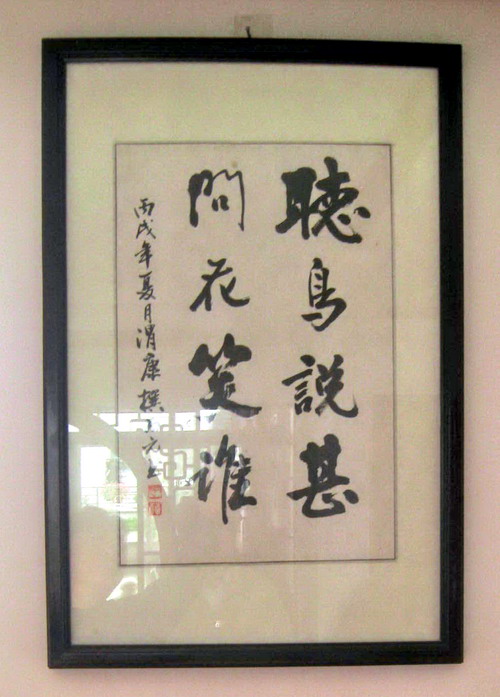 聽鳥說甚
問花笑誰
丙戌年夏月渭康撰